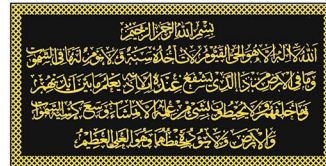 بسم الله الرحمن الرحيم
الله لا اله الا هو الحي القيوم لا تاخذه سنة ولا نوم له ما في السموات
وما في الارض من ذا الذي يشفع عنده الا باذنه يعلم ما بين ايديهم
وما خلفهم ولا يحيطون بشيء من علمه الا بما شاء وسع كرسيه السموات
والارض ولا يؤده حفظهما وهو العلي العظيم